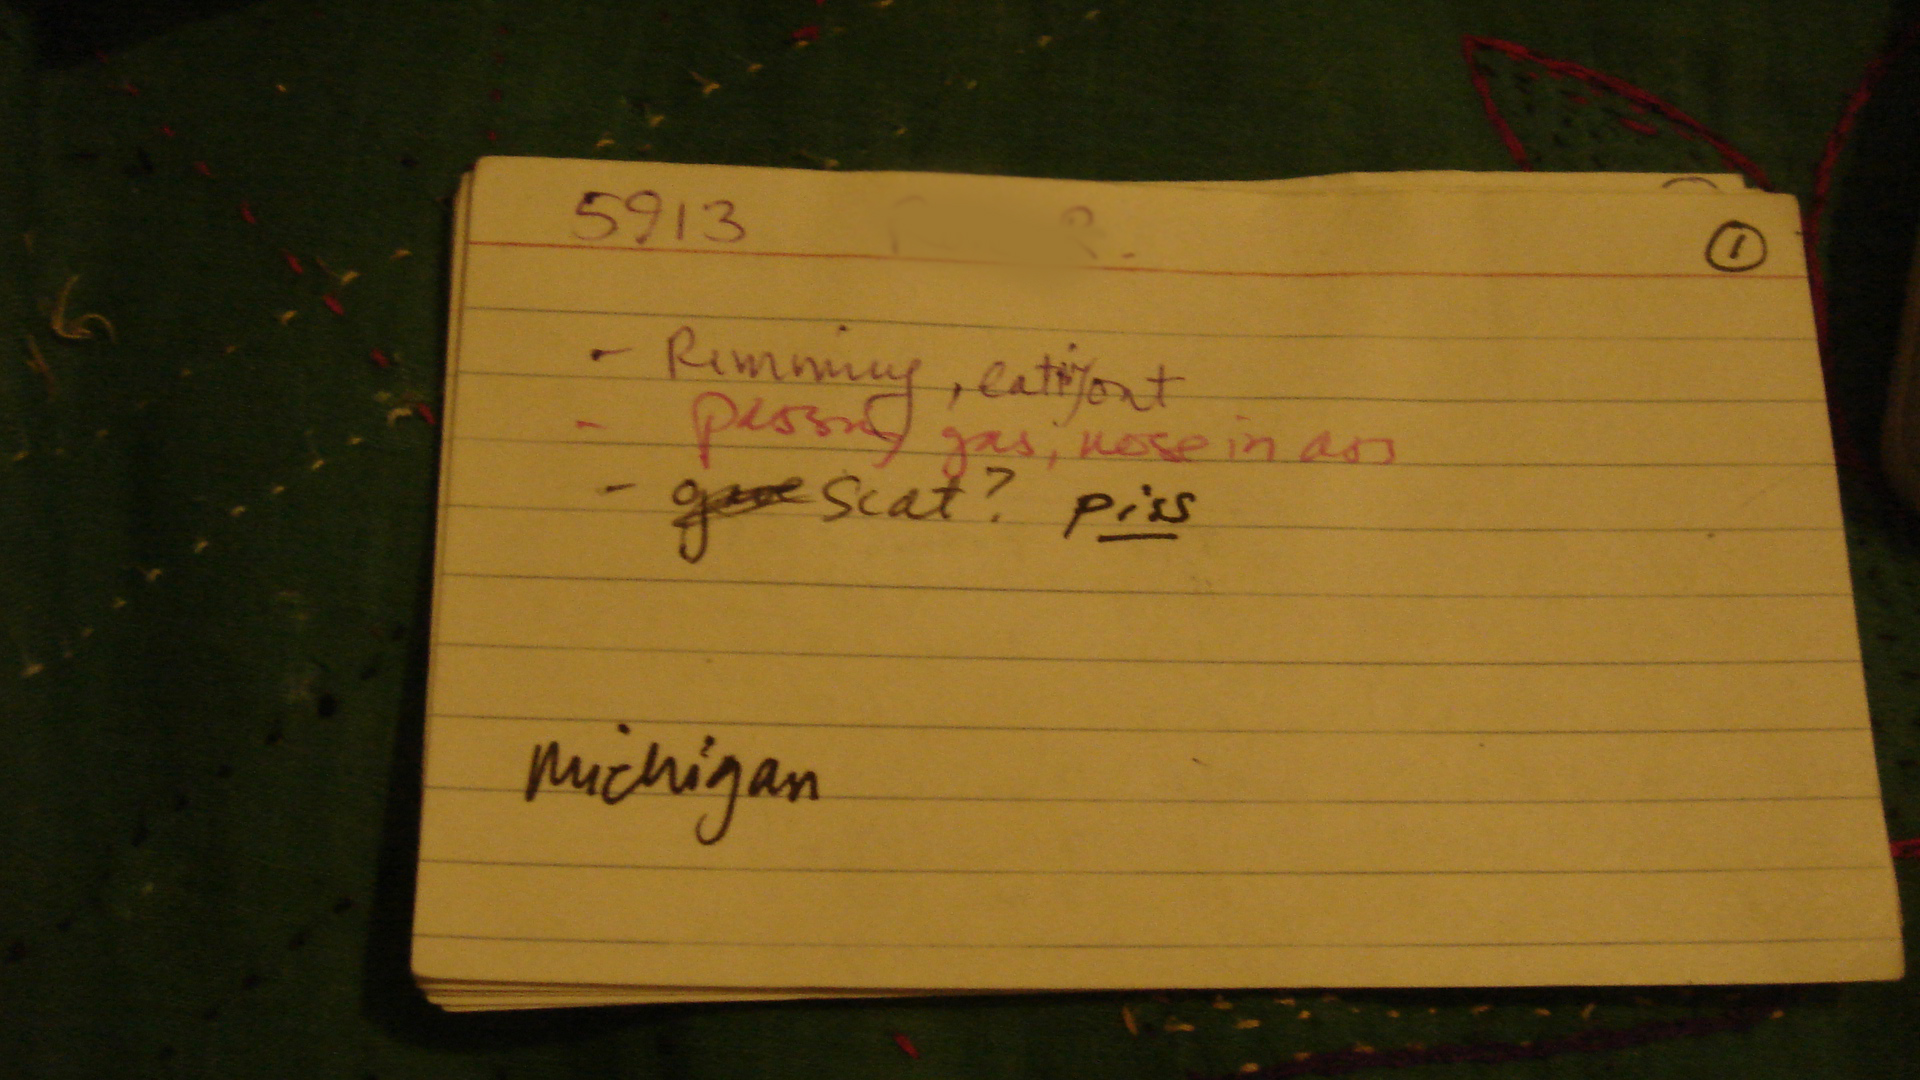 5913 R. ①
- Rimming, eating out
- passing gas, nose in ass
- Scat? piss
Michigan